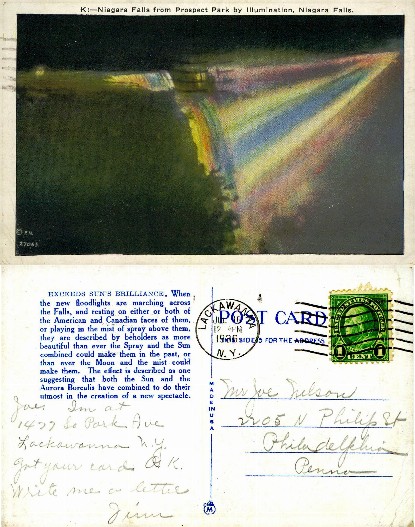 K:—Niagara Falls from Prospect Park by Illumination, Niagara Falls.
27063
EXCEEDS SUN'S BRILLIANCE. When
the new floodlights are marching across
the Falls, and resting on either or both of
the American and Canadian faces of them,
or playing in the mist of spray above them,
they are described by beholders as more
beautiful than ever the Spray and the Sun
combined could make them in the past, or
than ever the Moon and the mist could
make them. The effect is described as one
suggesting that both the Sun and the
Aurora Borealis have combined to do their
utmost in the creation of a new spectacle.
Joe: I'm at
1477 So Park Ave
Lackawanna N.Y.
Got your card O.K.
Write me a letter
Jim
LACKAWANNA
N.Y.
POST CARD
THIS SIDE IS FOR THE ADDRESS
1 CENT 1
MADE IN U.S.A.
Mr Joe Nelson
2205 N Philip St
Philadelphia
Penna